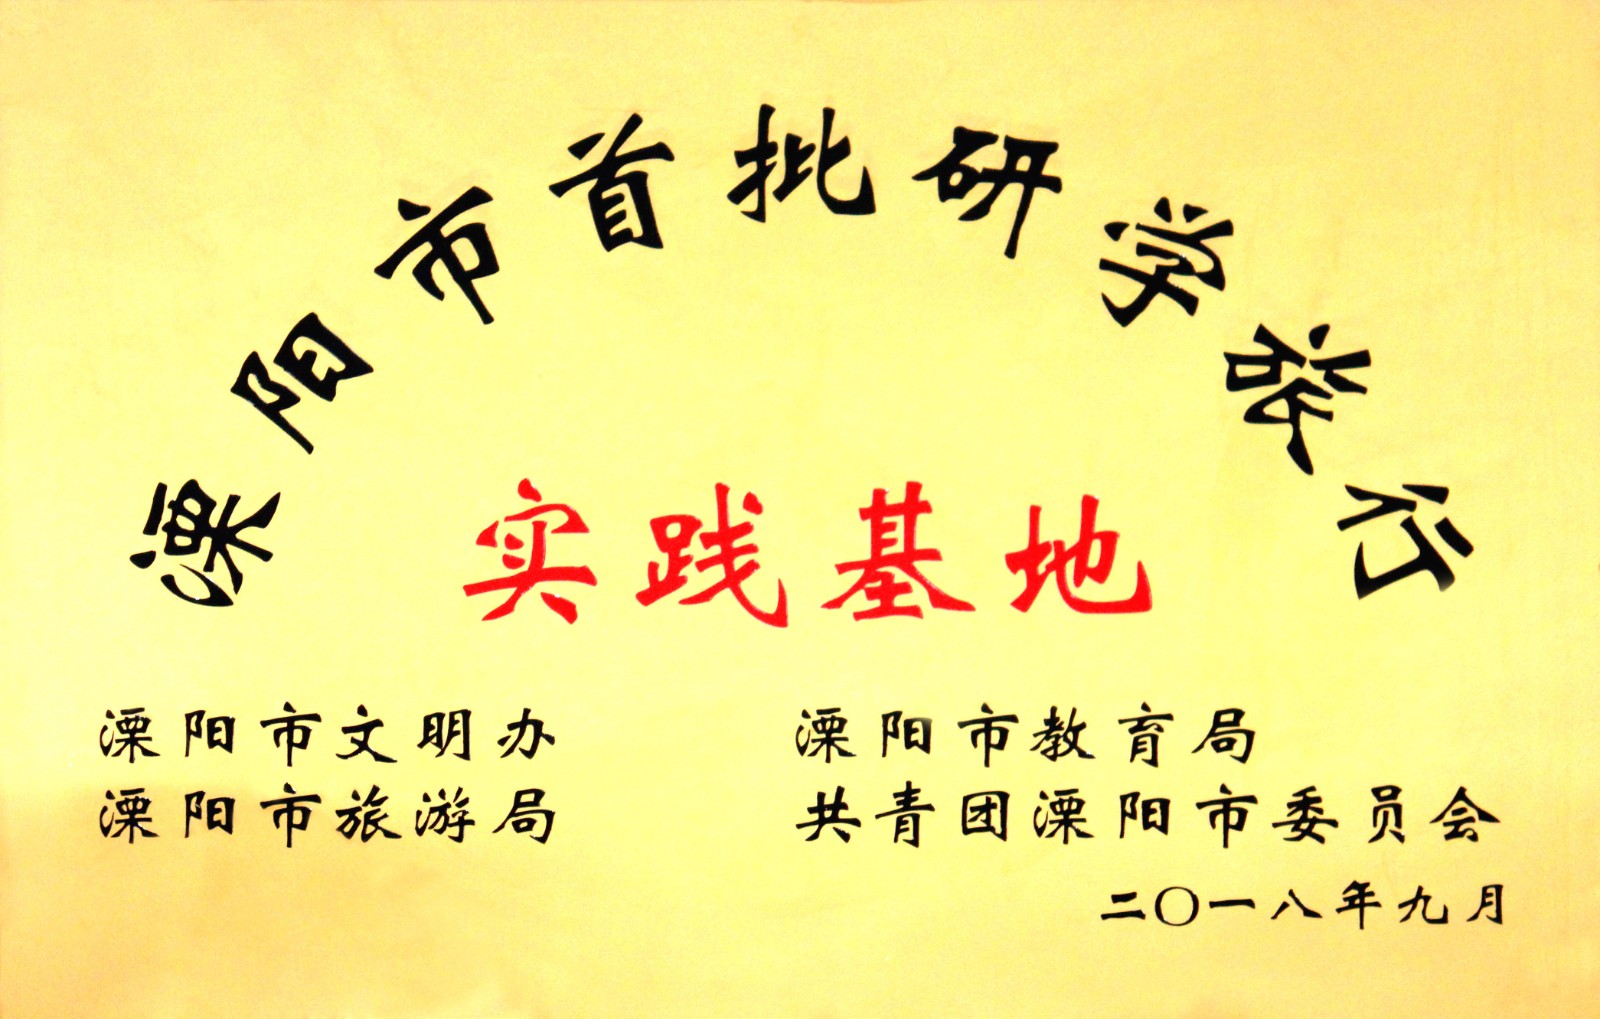 溧阳市首批研学旅行
实践基地
溧阳市文明办
溧阳市教育局
溧阳市旅游局
共青团溧阳市委员会
二〇一八年九月